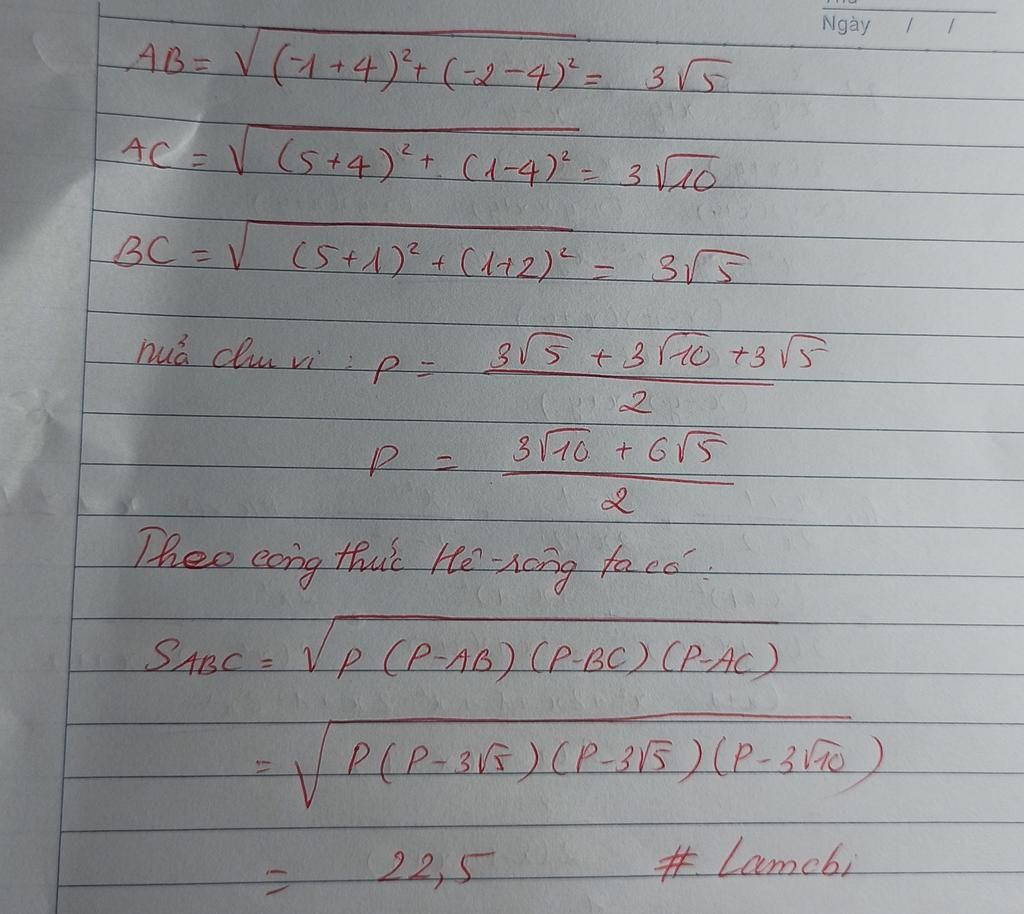 Ngày / /
AB = √(-1+4)² + (-2-4)² = 3√5
AC = √(5+4)² + (1-4)² = 3√10
BC = √(5+1)² + (1+2)² = 3√5
nửa chu vi : P = 3√5 + 3√10 + 3√5 / 2
P = 3√10 + 6√5 / 2
Theo công thức Hê-rông ta có :
SABC = √P (P-AB) (P-BC) (P-AC)
= √P (P-3√5) (P-3√5) (P-3√10)
= 22,5 # Lamchi